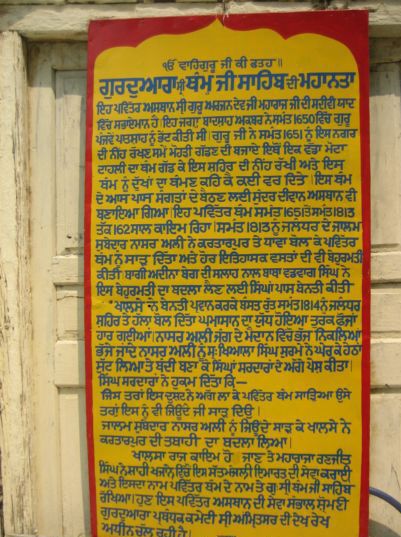 ੴ ਵਾਹਿਗੁਰੂ ਜੀ ਕੀ ਫਤਹ॥
ਗੁਰਦੁਆਰਾ ਸ੍ਰੀ ਥੰਮ ਜੀ ਸਾਹਿਬ ਦੀ ਮਹਾਨਤਾ
ਇਹ ਪਵਿੱਤਰ ਅਸਥਾਨ ਸ੍ਰੀ ਗੁਰੂ ਅਰਜਨ ਦੇਵ ਜੀ ਮਹਾਰਾਜ ਜੀ ਦੀ ਸਦੀਵੀ ਯਾਦ
ਵਿੱਚ ਸਭਾਏਮਾਨ ਹੈ। ਇਹ ਜਗ੍ਹਾ ਬਾਦਸ਼ਾਹ ਅਕਬਰ ਨੇ ਸੰਮਤ 1650 ਵਿੱਚ ਗੁਰੂ
ਪੰਜਵੇਂ ਪਾਤਸ਼ਾਹ ਨੂੰ ਭੇਂਟ ਕੀਤੀ ਸੀ ਗੁਰੂ ਜੀ ਨੇ ਸੰਮਤ 1651 ਨੂੰ ਇਸ ਨਗਰ
ਦੀ ਨੀਂਹ ਰੱਖਣ ਸਮੇਂ ਮੋਹੜੀ ਗੱਡਣ ਦੀ ਬਜਾਏ ਇਥੇ ਇਕ ਵੱਡਾ ਮੋਟਾ
ਟਾਹਲੀ ਦਾ ਥੰਮ ਗੱਡ ਕੇ ਇਸ ਸ਼ਹਿਰ ਦੀ ਨੀਂਹ ਰੱਖੀ ਅਤੇ ਇਸ
ਥੰਮ ਨੂੰ ਦੁੱਖਾਂ ਦਾ ਥੰਮਣ ਕਹਿ ਕੇ ਕਈ ਵਰ ਦਿਤੇ। ਇਸ ਥੰਮ
ਦੇ ਆਸ ਪਾਸ ਸੰਗਤਾਂ ਦੇ ਬੈਠਣ ਲਈ ਸੁੰਦਰ ਦੀਵਾਨ ਅਸਥਾਨ ਵੀ
ਬਣਾਇਆ ਗਿਆ। ਇਹ ਪਵਿੱਤਰ ਥੰਮ ਸੰਮਤ 1651 ਤੋਂ ਸੰਮਤ 1813
ਤੱਕ 162 ਸਾਲ ਕਾਇਮ ਰਿਹਾ। ਸੰਮਤ 1813 ਨੂੰ ਜਲੰਧਰ ਦੇ ਜ਼ਾਲਮ
ਸੂਬੇਦਾਰ ਨਾਸਰ ਅਲੀ ਨੇ ਕਰਤਾਰਪੁਰ ਤੇ ਧਾਵਾ ਬੋਲ ਕੇ ਪਵਿੱਤਰ
ਥੰਮ ਨੂੰ ਸਾੜ ਦਿੱਤਾ ਅਤੇ ਹੋਰ ਇਤਿਹਾਸਕ ਵਸਤਾਂ ਦੀ ਵੀ ਬੇਹੁਰਮਤੀ
ਕੀਤੀ ਬਾਗੀ ਅਦੀਨਾ ਬੇਗ ਦੀ ਸਲਾਹ ਨਾਲ ਬਾਬਾ ਵਡਭਾਗ ਸਿੰਘ ਨੇ
ਇਸ ਬੇਹੁਰਮਤੀ ਦਾ ਬਦਲਾ ਲੈਣ ਲਈ ਸਿੰਘਾਂ ਪਾਸ ਬੇਨਤੀ ਕੀਤੀ
ਖਾਲਸੇ ਨੇ ਬੇਨਤੀ ਪ੍ਰਵਾਨ ਕਰਕੇ ਬਸੰਤ ਰੁੱਤ ਸੰਮਤ 1814 ਨੂੰ ਜਲੰਧਰ
ਸ਼ਹਿਰ ਤੇ ਹੱਲਾ ਬੋਲ ਦਿੱਤਾ ਘਮਾਸਾਨ ਦਾ ਯੁੱਧ ਹੋਇਆ ਤੁਰਕ ਫੌਜਾਂ
ਹਾਰ ਗਈਆਂ। ਨਾਸਰ ਅਲੀ ਜੰਗ ਦੇ ਮੈਦਾਨ ਵਿੱਚੋਂ ਭੱਜ ਨਿਕਲਿਆ
ਭੱਜੇ ਜਾਂਦੇ ਨਾਸਰ ਅਲੀ ਨੂੰ ਸ: ਖਿਆਲਾ ਸਿੰਘ ਸੂਰਮੇ ਨੇ ਘੇਰ ਕੇ ਹੇਠਾਂ
ਸੁੱਟ ਲਿਆ ਤੇ ਬੰਦੀ ਬਣਾ ਕੇ ਸਿੰਘਾਂ ਸਰਦਾਰਾਂ ਦੇ ਅੱਗੇ ਪੇਸ਼ ਕੀਤਾ।
ਸਿੰਘ ਸਰਦਾਰਾਂ ਨੇ ਹੁਕਮ ਦਿੱਤਾ ਕਿ—
ਜਿਸ ਤਰਾਂ ਇਸ ਦੁਸ਼ਟ ਨੇ ਅੱਗ ਲਾ ਕੇ ਪਵਿੱਤਰ ਥੰਮ ਸਾੜਿਆ ਉਸੇ
ਤਰਾਂ ਇਸ ਨੂੰ ਵੀ ਜਿਉਂਦੇ ਜੀ ਸਾੜ ਦਿਉ।
ਜ਼ਾਲਮ ਸੂਬੇਦਾਰ ਨਾਸਰ ਅਲੀ ਨੂੰ ਜਿਉਂਦੇ ਸਾੜ ਕੇ ਖਾਲਸੇ ਨੇ
ਕਰਤਾਰਪੁਰ ਦੀ ਤਬਾਹੀ ਦਾ ਬਦਲਾ ਲਿਆ।
ਖਾਲਸਾ ਰਾਜ ਕਾਇਮ ਹੋ ਜਾਣ ਤੇ ਮਹਾਰਾਜਾ ਰਣਜੀਤ
ਸਿੰਘ ਨੇ ਸ਼ਾਹੀ ਖਜ਼ਾਨੇ ਵਿੱਚੋਂ ਇਸ ਸੱਤ ਮੰਜ਼ਲੀ ਇਮਾਰਤ ਦੀ ਸੇਵਾ ਕਰਾਈ
ਅਤੇ ਇਸਦਾ ਨਾਮ ਪਵਿੱਤਰ ਥੰਮ ਦੇ ਨਾਮ ਤੇ ਗੁ: ਸ੍ਰੀ ਥੰਮ ਜੀ ਸਾਹਿਬ
ਰੱਖਿਆ। ਹੁਣ ਇਸ ਪਵਿੱਤਰ ਅਸਥਾਨ ਦੀ ਸੇਵਾ ਸੰਭਾਲ ਸ਼੍ਰੋਮਣੀ
ਗੁਰਦੁਆਰਾ ਪ੍ਰਬੰਧਕ ਕਮੇਟੀ ਸ੍ਰੀ ਅੰਮ੍ਰਿਤਸਰ ਦੀ ਦੇਖ ਰੇਖ
ਅਧੀਨ ਚੱਲ ਰਹੀ ਹੈ।